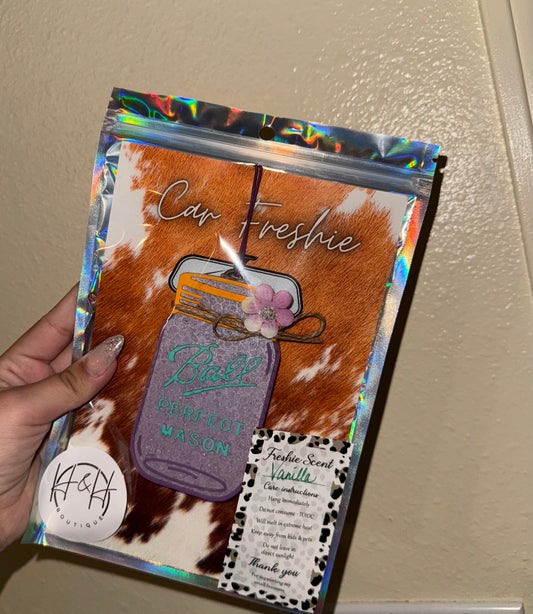 Car Freshie
Ball
PERFECT
MASON
H&H
BOUTIQUE
Freshie Scent
Vanilla
Care instructions
Hang immediately
Do not consume - TOXIC
Will melt in extreme heat
Keep away from kids & pets
Do not leave in
direct sunlight
Thank you
For supporting my
small business